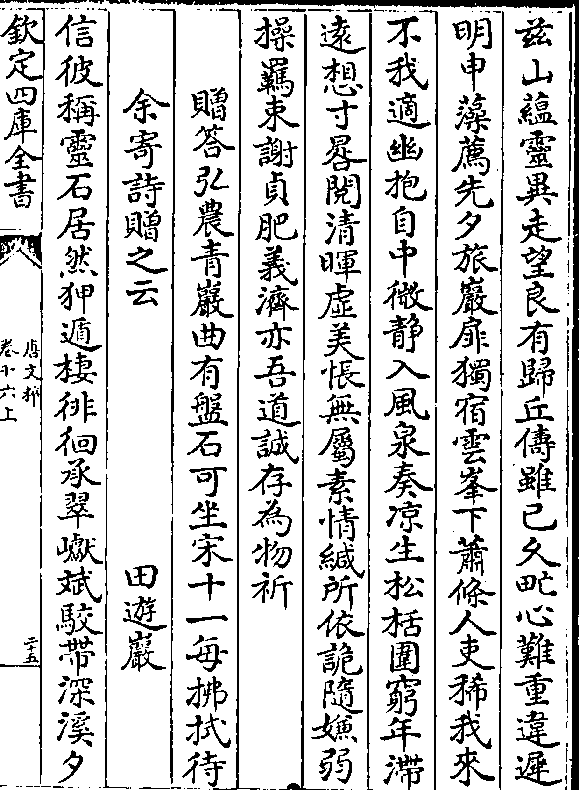 茲山蘊靈異走望良有歸丘儔雖已久甿心難重違遲
明申藻薦先夕旅巖扉獨宿雲峯下蕭條人吏稀我來
不我適幽抱自中微静入風泉奏凉生松栝圍窮年滯
遠想寸晷閱清暉虛美悵無屬素情緘所依詭隨嫌弱
操羈束謝貞肥義濟亦吾道誠存為物祈
贈答弘農青巖曲有盤石可坐宋十一每拂拭待
余寄詩贈之云　田遊巖
信彼稱靈石居然狎遁棲徘徊承翠巘斌駮帶深溪夕
欽定四庫全書
唐文粹
卷十六上
二十五